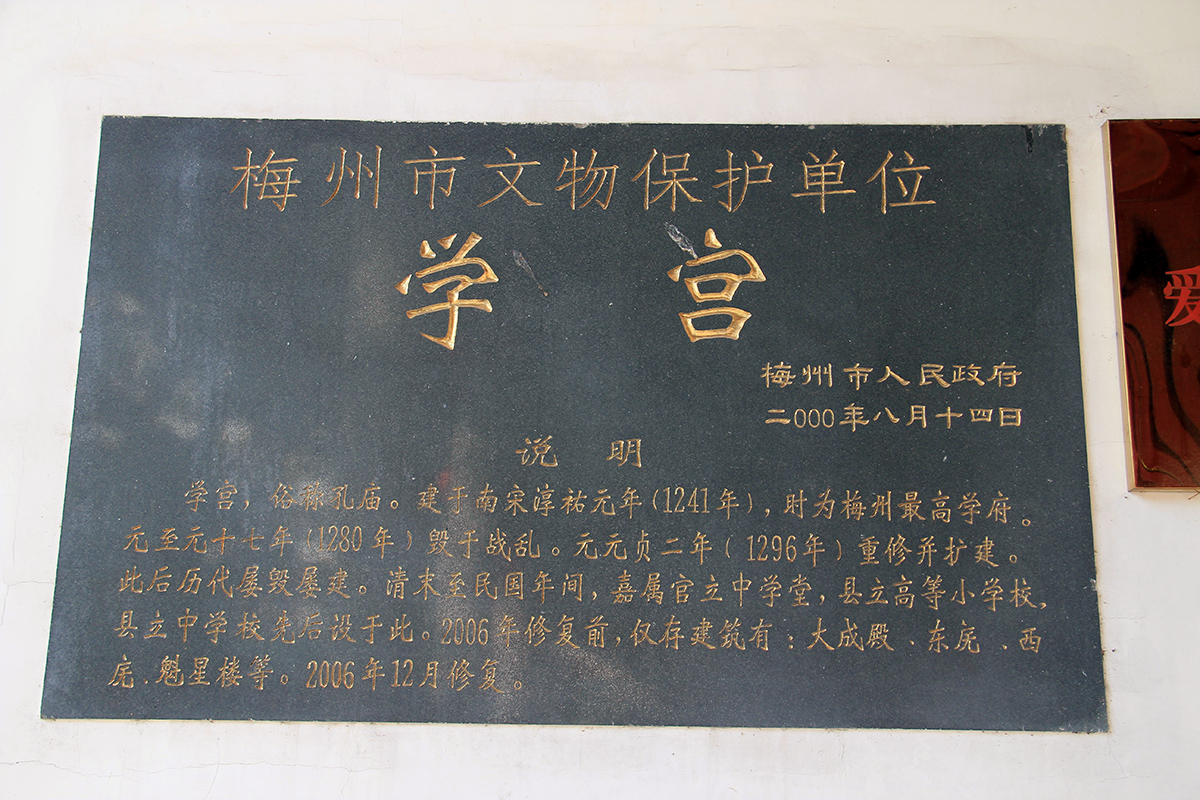 梅州市文物保护单位
学宫
梅州市人民政府
二000年八月十四日
说明
学宫，俗称孔庙。建于南宋淳祐元年(1241年)，时为梅州最高学府。
元至元十七年(1280年)毁于战乱。元元贞二年(1296年)重修并扩建。
此后历代屡毁屡建。清末至民国年间，嘉属官立中学堂，县立高等小学校，
县立中学校先后设于此。2006年修复前，仅存建筑有：大成殿、东庑、西
庑、魁星楼等。2006年12月修复。
爱